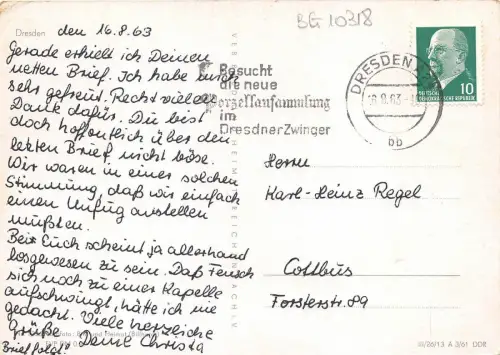 BG 10318
Dresden den 16.8.63
Gerade erhielt ich Deinen
netten Brief. Ich habe mich
sehr gefreut. Recht vielen
Dank dafür. Du bist
doch hoffentlich über den
letzten Brief nicht böse.
Wir waren in einer solchen
Stimmung, daß wir einfach
einen Unfug anstellen
mußten.
Bei Euch scheint ja allerhand
losgewesen zu sein. Daß
sich noch zu einer Kapelle
aufschwingt, hätte ich nie
gedacht. Viele herzliche
Grüße Deine Christa
Brief folgt!
Besucht
die neue
Porzellansammlung
im
Dresdner Zwinger
DRESDEN
16.8.63
bb
DEUTSCHE
DEMOKRATISCHE REPUBLIK
10
Herrn
Karl-Heinz Regel
Cottbus
Forsterstr. 89
III/26/13 A 3/61 DDR